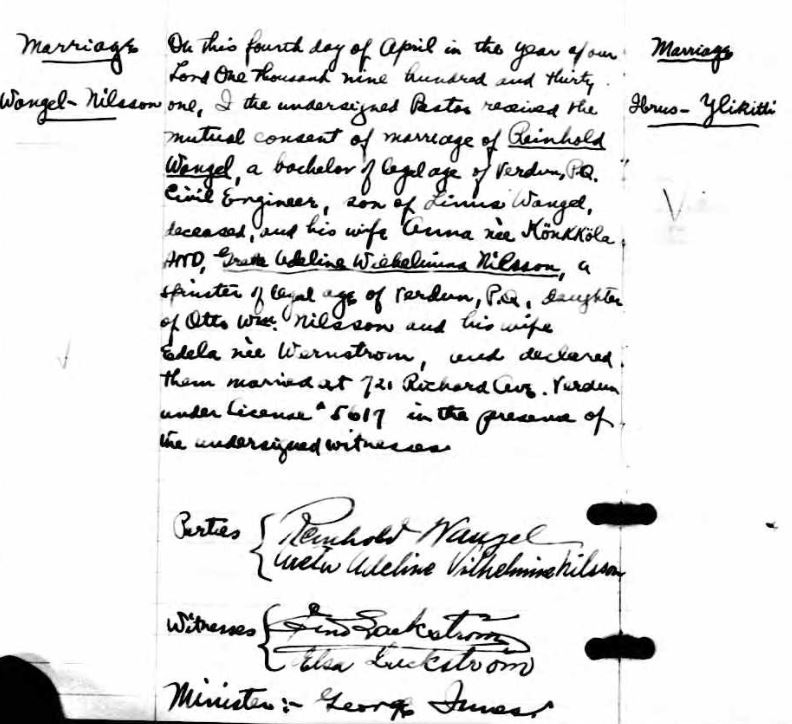 Marriage
Wangel - Nilsson
On this fourth day of April in the year of our
Lord One thousand nine hundred and thirty
one, I the undersigned Pastor received the
mutual consent of marriage of Reinhold
Wangel, a bachelor of legal age of Verdun, P.Q.
Civil Engineer, son of Linus Wangel,
deceased, and his wife Anna nèe Könkköla
AND, Greta Adeline Wilhelmina Nilsson, a
spinster of legal age of Verdun, P.Q. daughter
of Otto Wm. Nilsson and his wife
Edela nèe Wernstrom, and declared
them married at 721 Richard Ave. Verdun
under License # 5617 in the presence of
the undersigned witnesses
Parties
Reinhold Wangel
Greta Adeline Vilhelmina Nilsson
Witnesses
Elsa
Minister :- George
Marriage
- Ylikitti